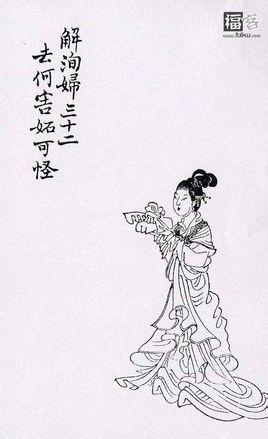 解洵婦三十二
去何害妬可怪
福客
www.fakw.com